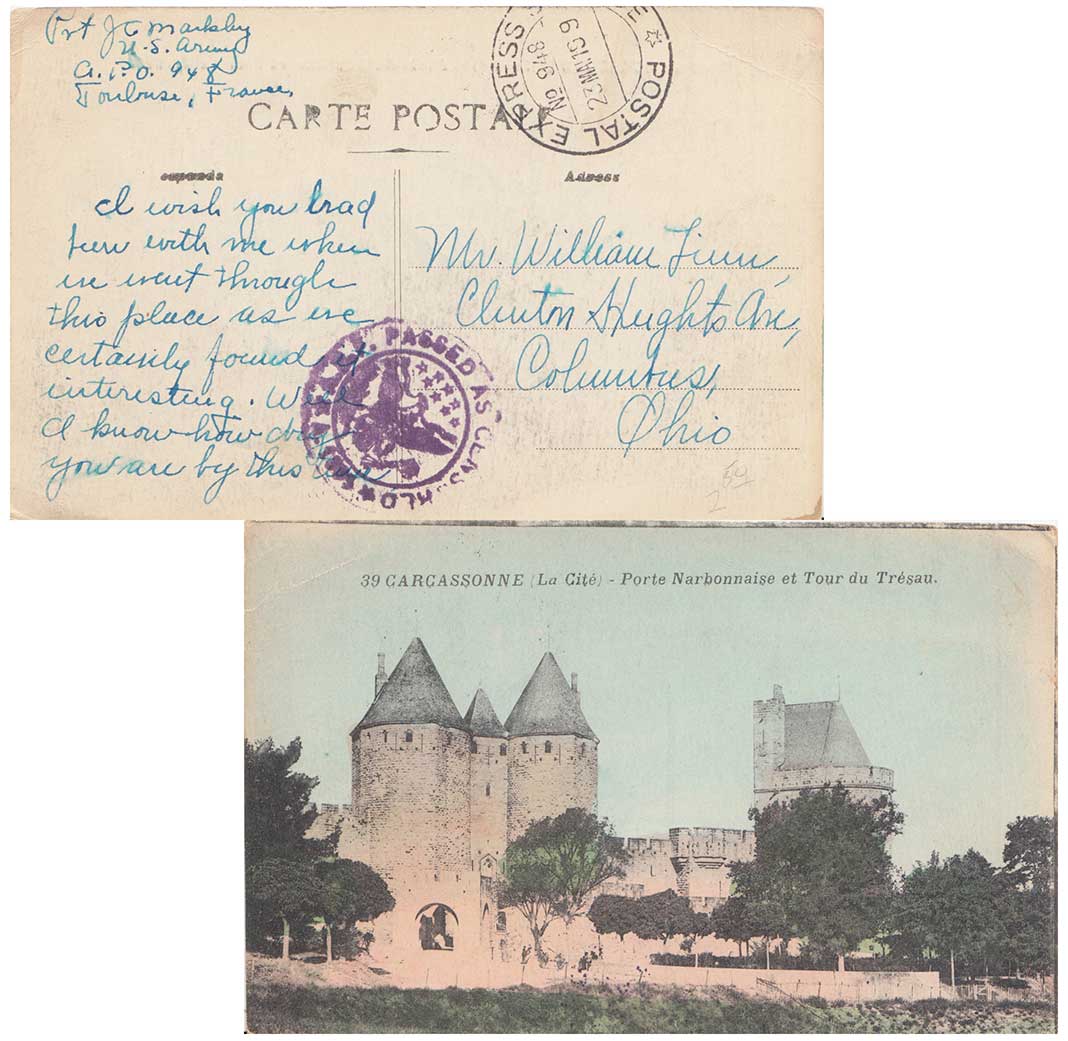 Pvt J C Marksley
U.S. Army
A.P.O. 948
Toulouse, France.
CARTE POSTALE
POSTAL EXPRESS
No 948
23 MA 1919
Adress
I wish you had
been with me when
we went through
this place as we
certainly found it
interesting. Well
I know how dry
you are by this time
Mr. William Finn
Clinton Heights Ave,
Columbus,
Ohio
PASSED AS CENSORED
39 CARCASSONNE (La Cité) - Porte Narbonnaise et Tour du Trésau.